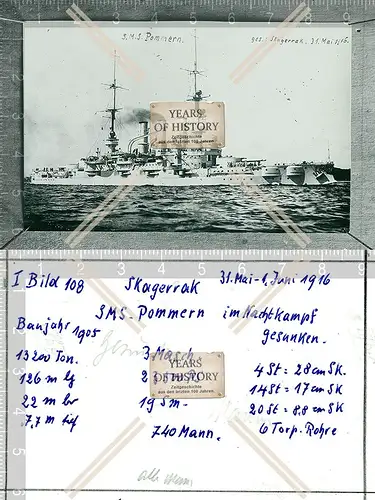 S.M.S. Pommern.
ges. Skagerrak. 31. Mai 1/15.
YEARS
OF HISTORY
Zeitgeschichte
aus den letzten 100 Jahren
I Bild 108 Skagerrak 31. Mai-1. Juni 1916
SMS. Pommern im Nachtkampf
gesunken.
Baujahr 1905
13200 Ton. 3 Masch. 4 St = 28 cm SK.
126 m lg
YEARS
OF HISTORY
Zeitgeschichte
aus den letzten 100 Jahren
14 St = 17 cm SK
22 m br 19 Sm. 20 St = 8,8 cm SK
7,7 m tief 740 Mann. 6 Torp.-Rohre